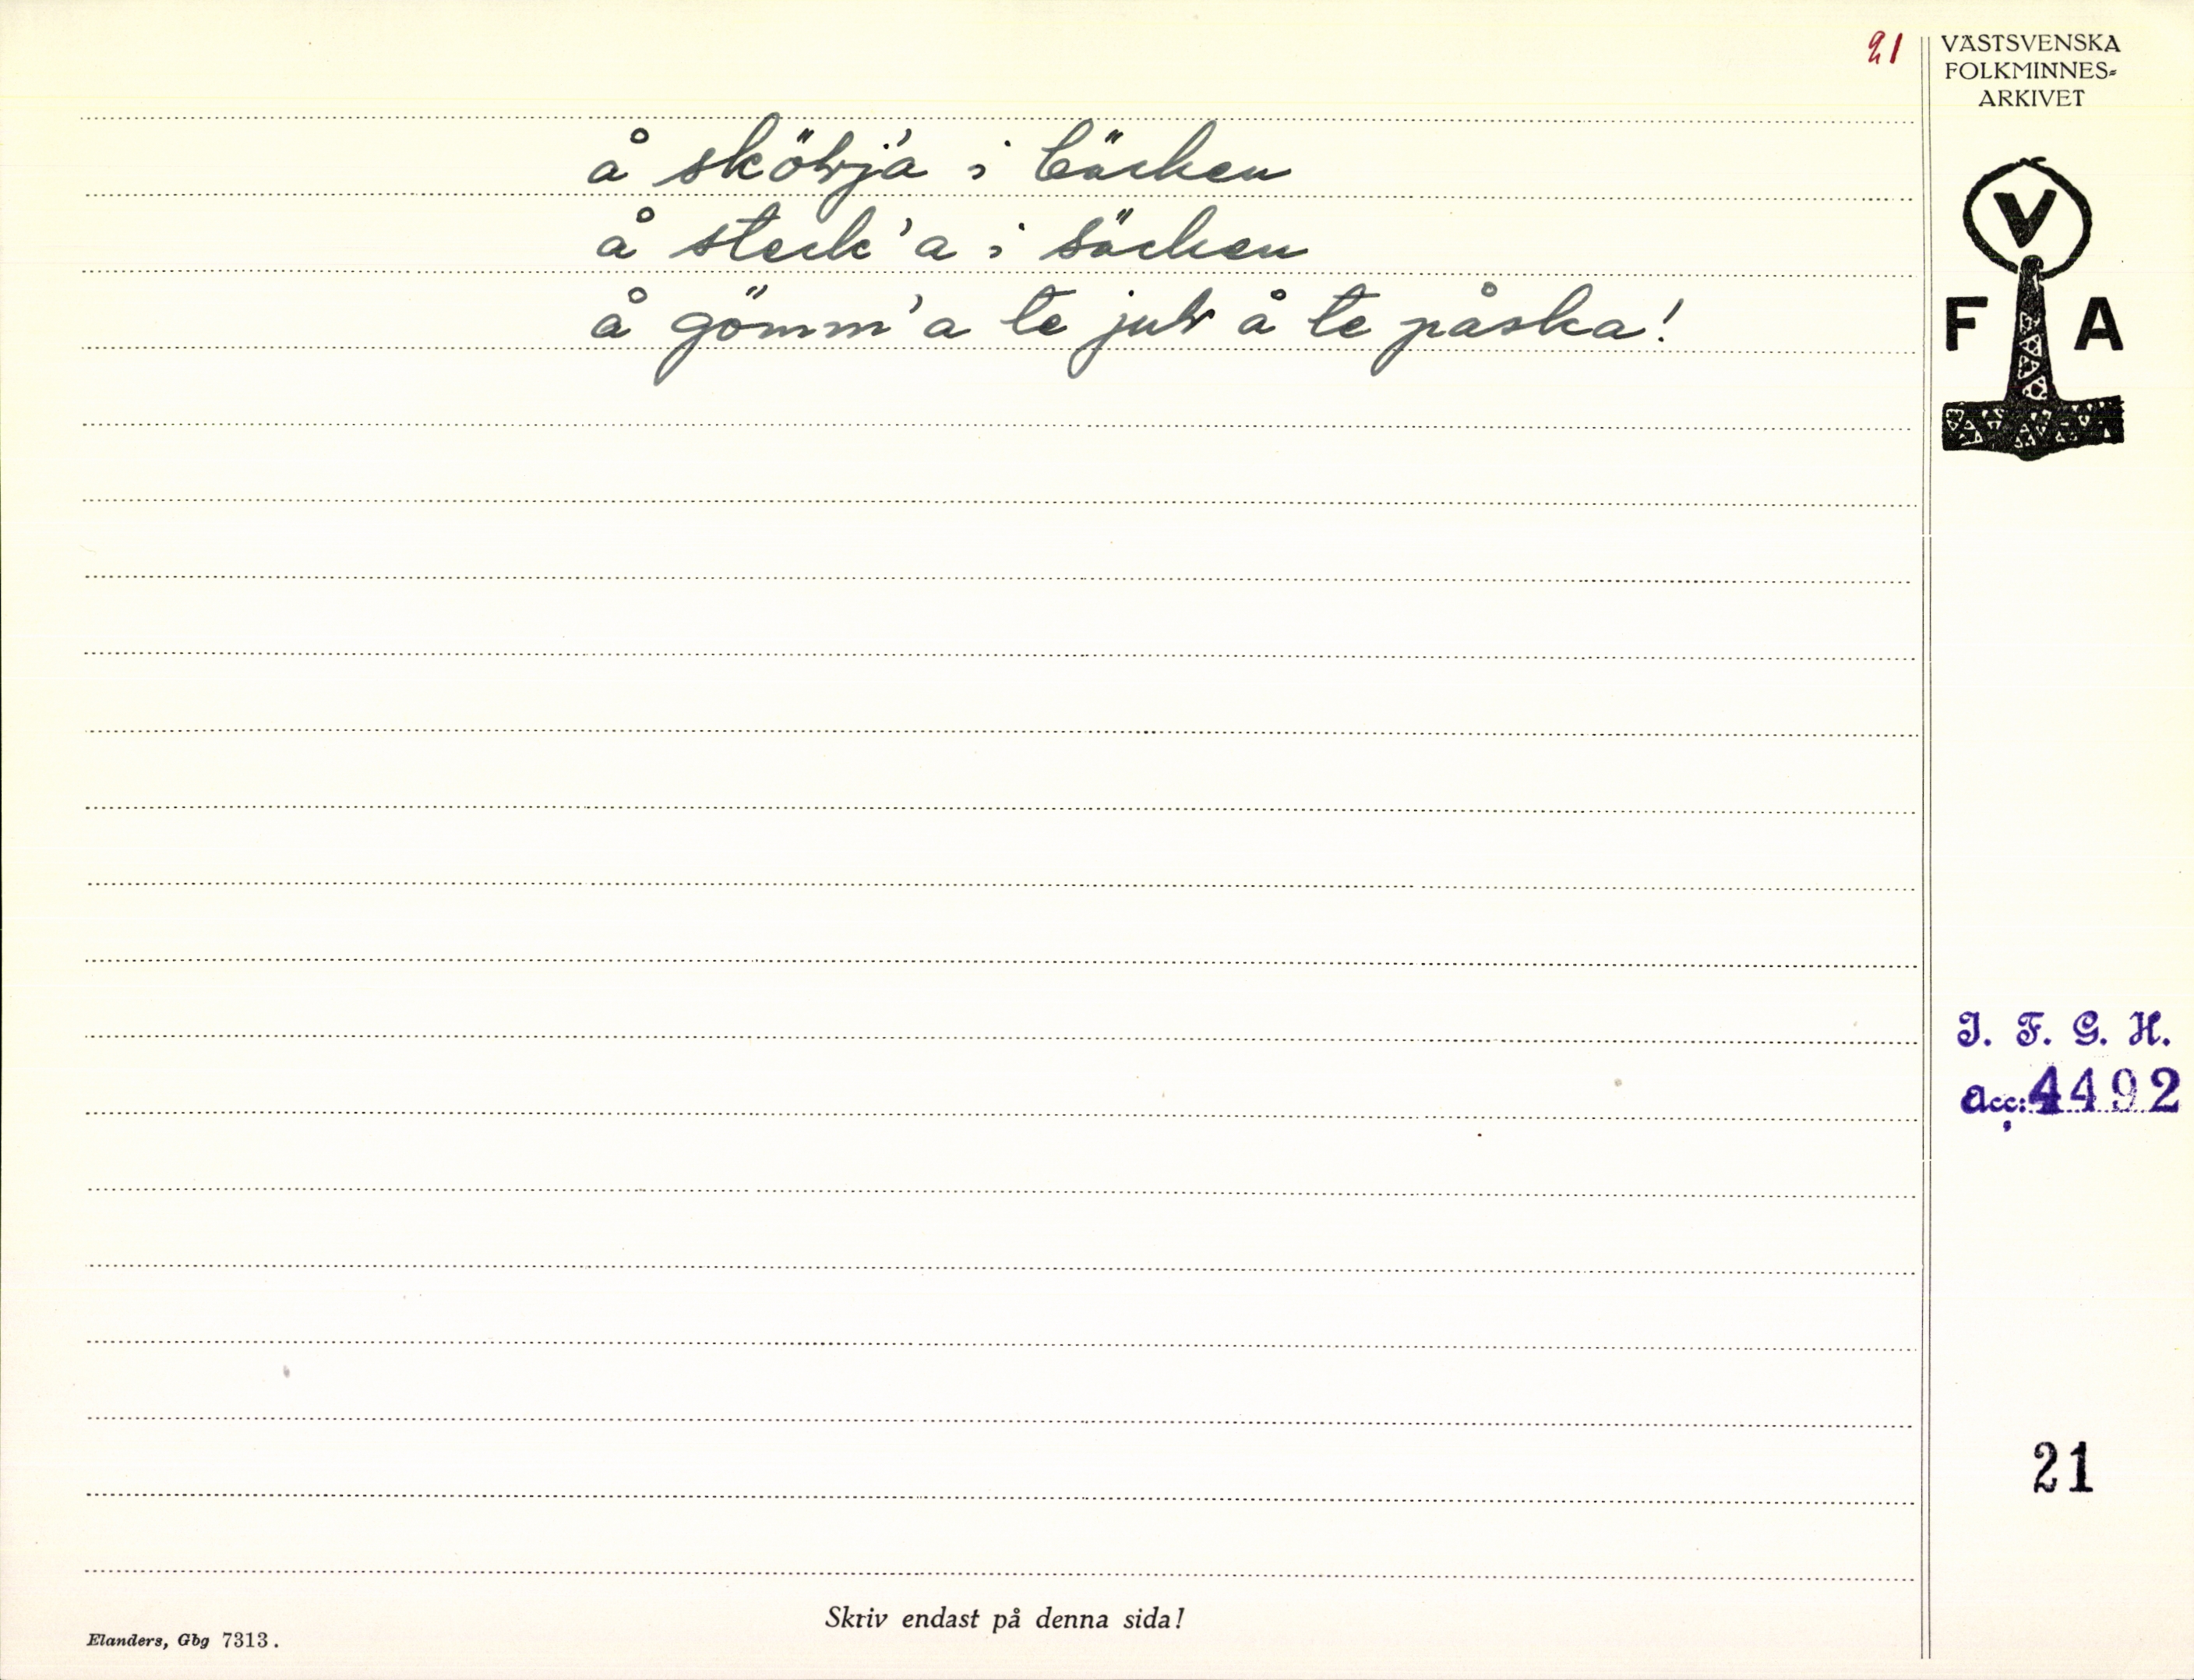 21
VÄSTSVENSKA
FOLKMINNES-
ARKIVET
å skölj'a i bäcken
å steck'a i säcken
å gömm'a te jul å te påska!
V
F A
I. F. G. H.
Acc: 4492
21
Skriv endast på denna sida!
Elanders, Gbg 7313.